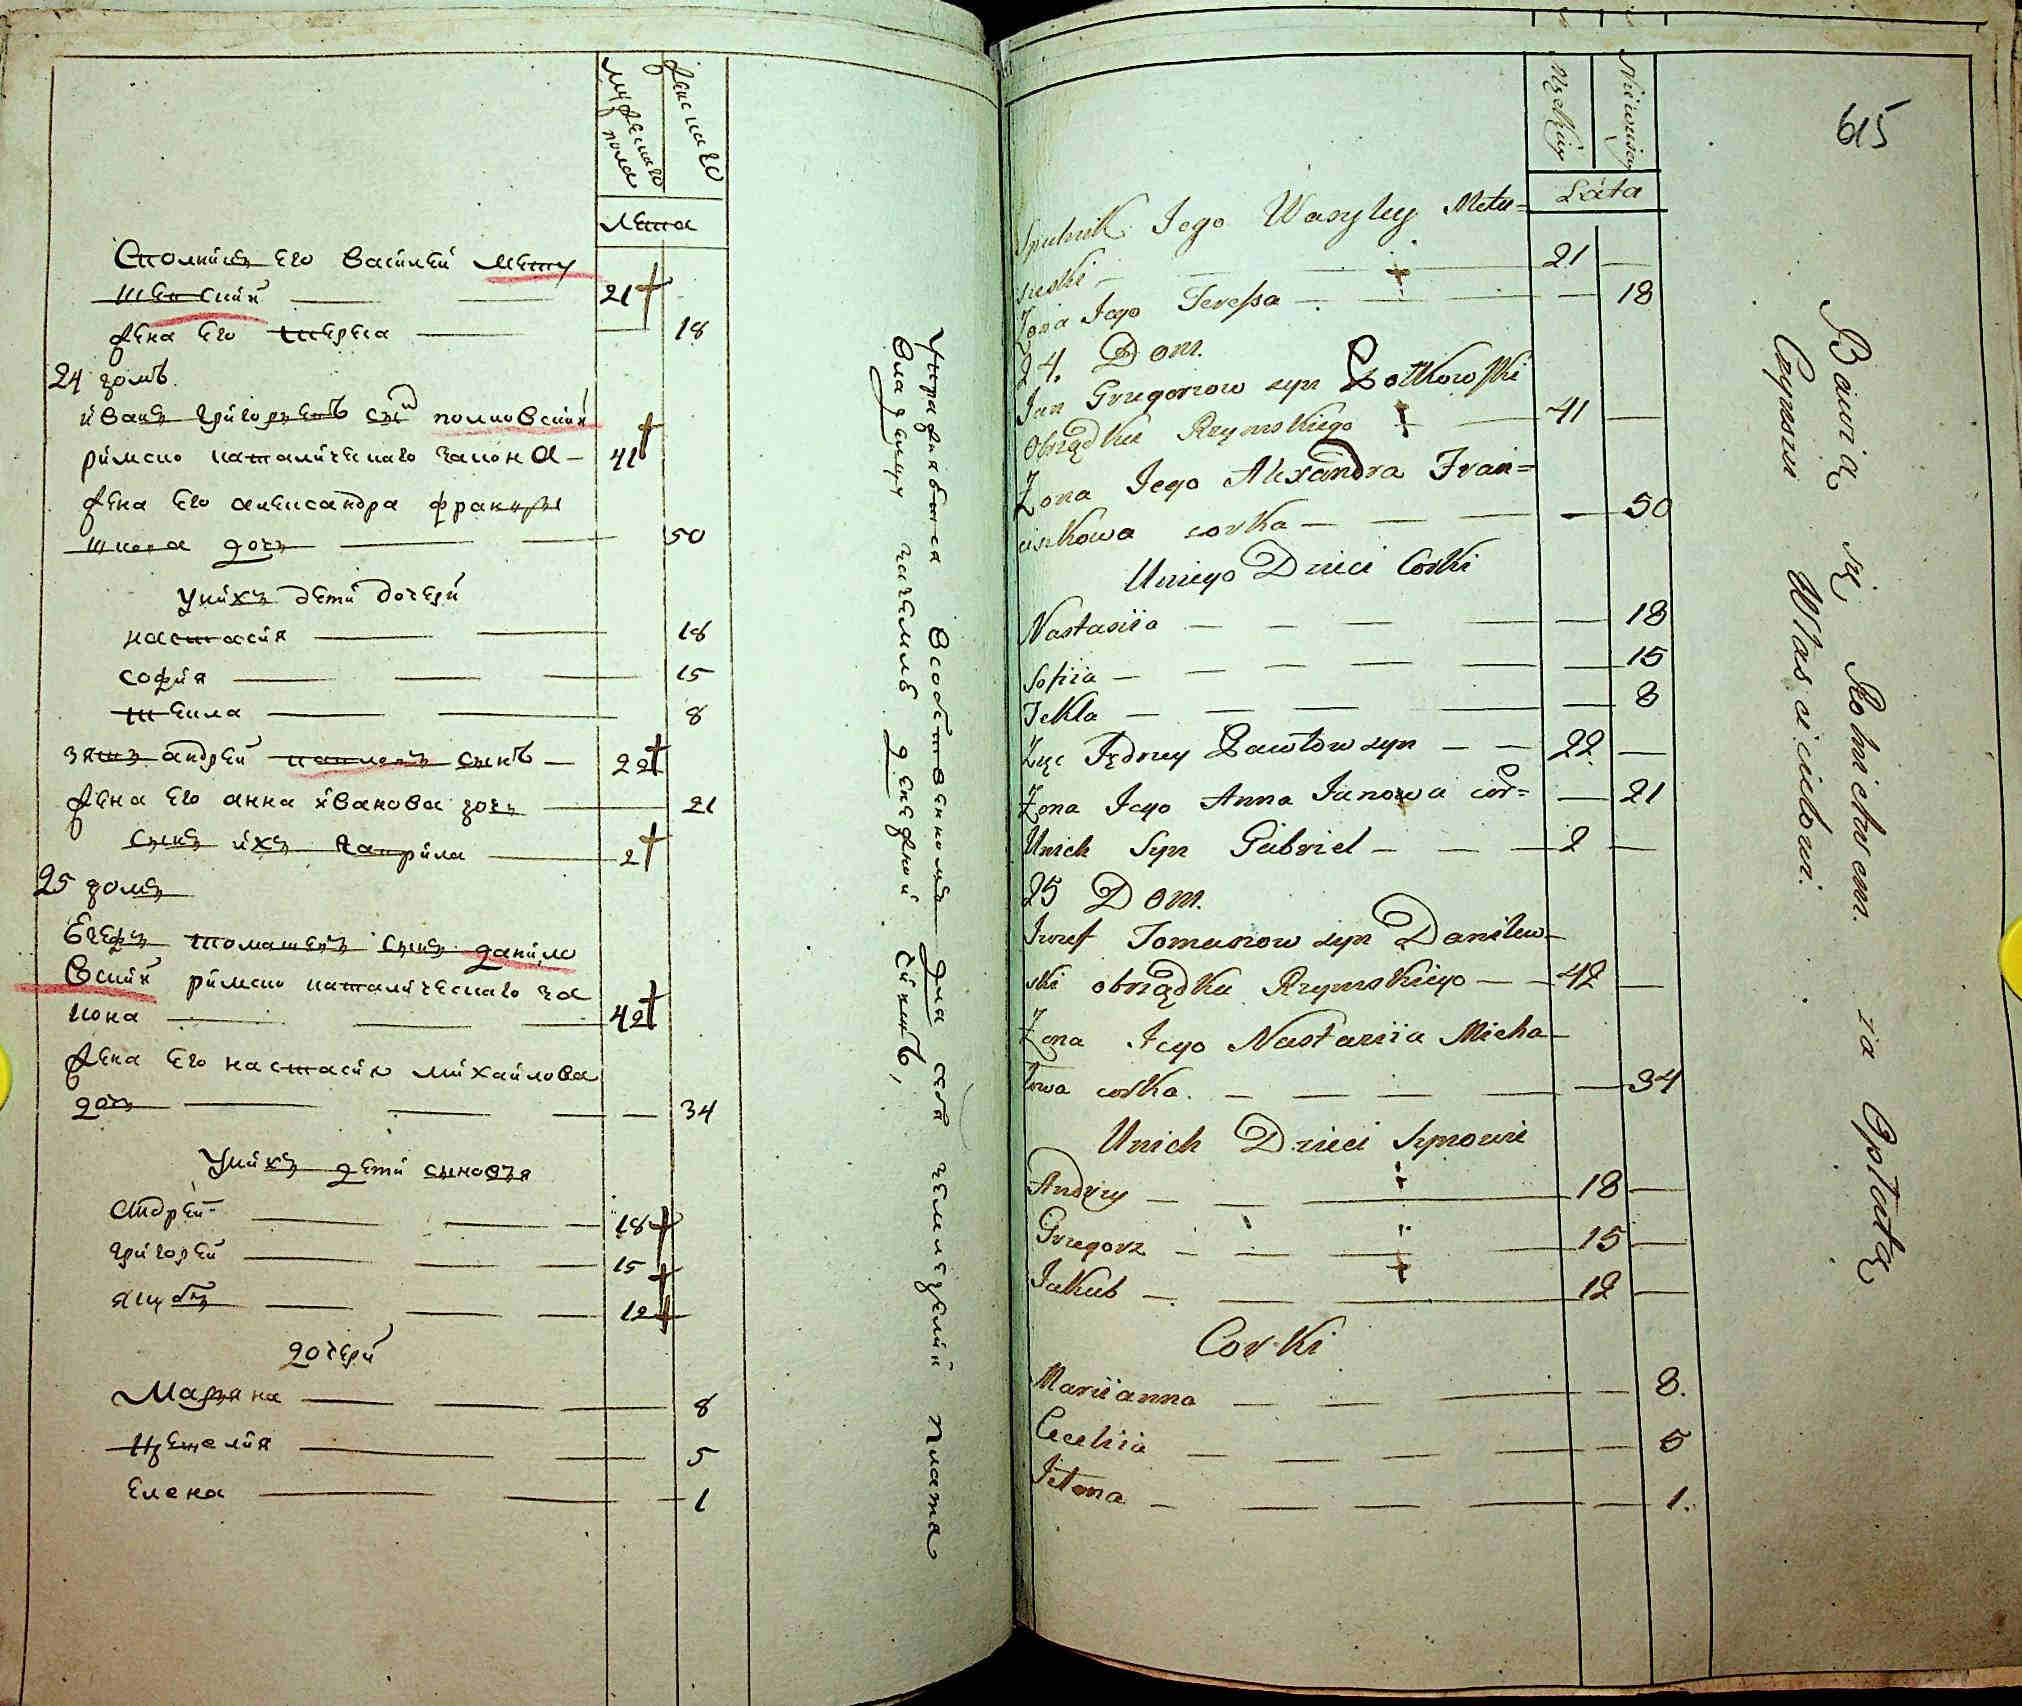 мужескаго пола
женскаго
лета
Спольникъ его Василей Мету
шевский — — 21
жена его Тереса — — 18
24 домъ
Иванъ Григорьевъ сынъ Полковский
римско католическаго закона — 41
жена его Александра Францы
шкова дочь — — 50
У нихъ дети дочери
Настасия — — 18
София — — — 15
Текла — — 8
зять Андрей Павловъ сынъ — 22
жена его Анна Иванова дочь — 21
сынъ ихъ Гаврила — 2
25 домъ
Езефъ Томашевъ сынъ Данило
вский римско католическаго за
кона — — — 42
жена его Настасия Михайлова
дочь — — — — 34
У нихъ дети сыновья
Андрей — — — 18
Григорей — — — 15
Якубъ — — — 12
дочери
Марьяна — — — 8
Цецелия — — 5
Елена — — — 1
Упражняются в собственномъ для себя земледелии плата
владельцу чинемъ денежной
Męskiey
Niewieściey
Lata
615
Spulnik Jego Wasyley Metu=
suski — — — 21 —
Zona Jego Teressa — — — — 18
24. Dom.
Jan Gregorzow syn Polkowski
Obrządku Rzymskiego — — 41 —
Zona Jego Alexandra Fran=
ciszkowa corka — — — — 50
U niego Dzieci Corki
Nastasiia — — — — — 18
Sofiia — — — — — 15
Tekla — — — — — 8
Zięc Jędrzey Pawłow syn — — 22 —
Zona Jego Anna Janowa cor= — 21
U nich Syn Gabriel — — — 2 —
25 Dom.
Jozef Tomaszow syn Danilew=
ski obrządku Rzymskiego — — 42 —
Zona Jego Nastaziia Micha=
łowa corka. — — — — — 34
U nich Dzieci Synowie
Andrzy — — — 18 —
Grzegorz — — — 15 —
Jakub — — — 12 —
Corki
Mariianna — — — — 8.
Ceceliia — — — — 5
Jelena — — — — — 1.
Bawią się Rolnictwem. za Opłatą
Czynszu Włascicielowi.